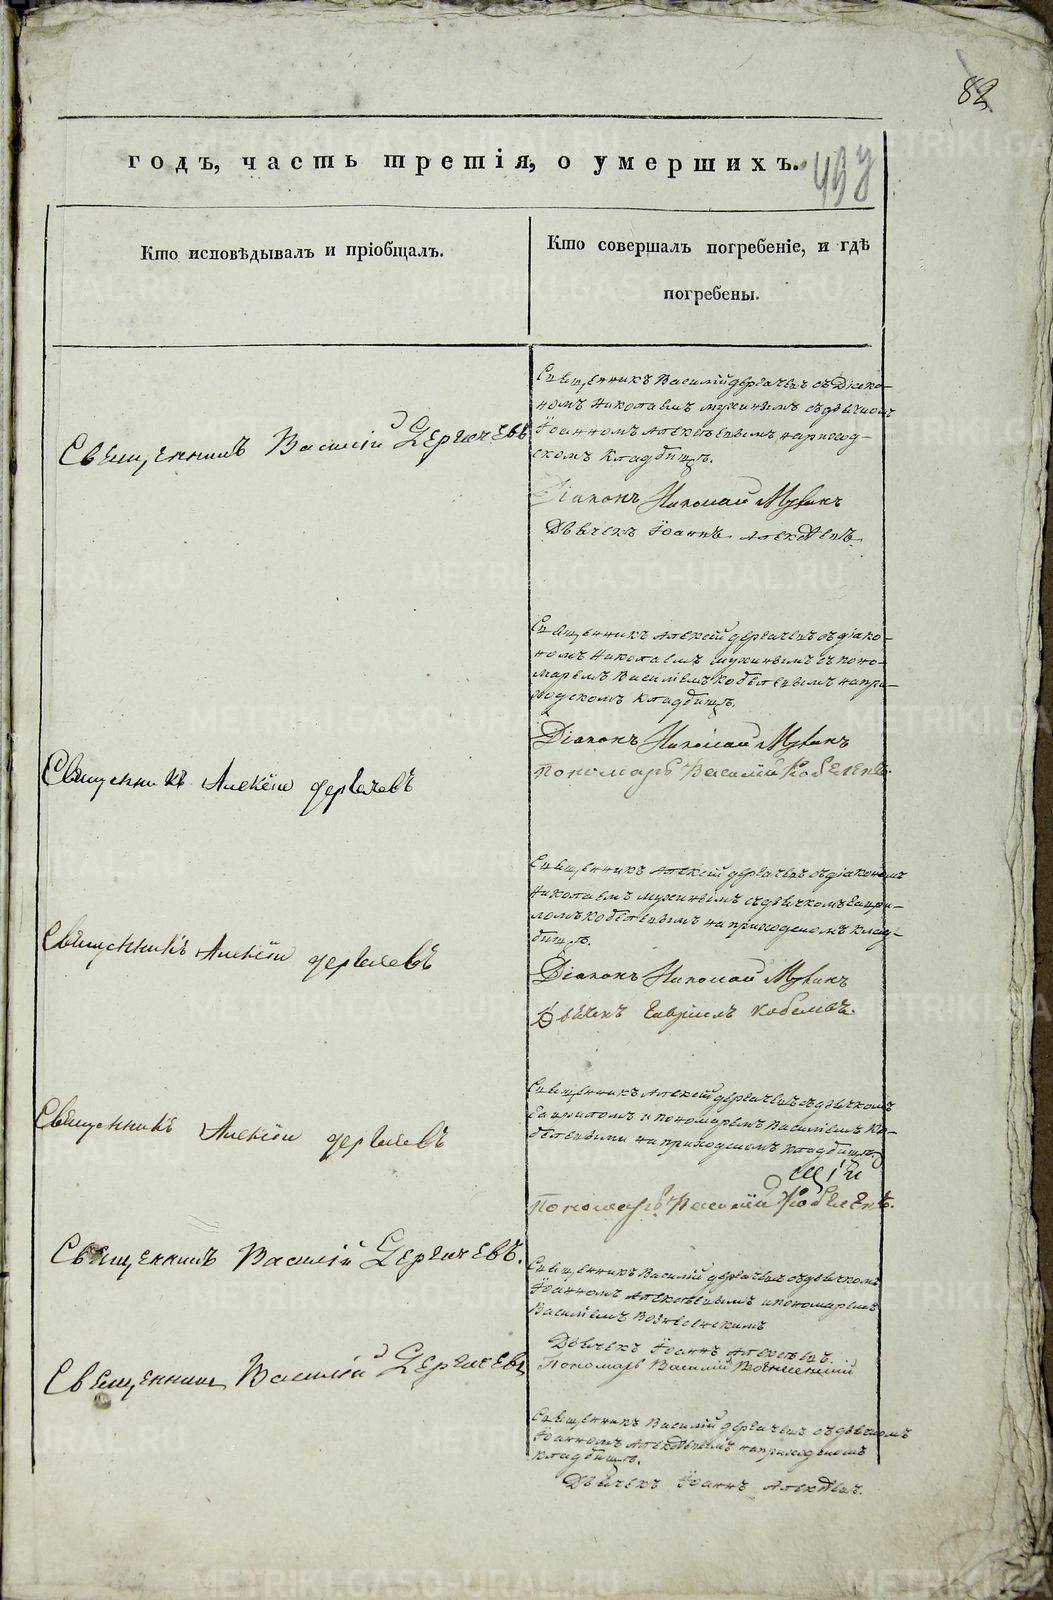 82
годъ, часть третія, о умершихъ.
Кто исповѣдывалъ и пріобщалъ.
Кто совершалъ погребеніе, и гдѣ
погребены.
Священникъ Василій Дергачевъ
Священникъ Василій Дергачевъ съ Діако-
номъ Николаемъ Мухинымъ съ дьячкомъ
Іоанномъ Алексѣевымъ на приход-
скомъ кладбищѣ.
Діаконъ Николай Мухинъ
Дьячекъ Іоаннъ Алексѣевъ
Священникъ Алексій Дергачевъ
Священникъ Алексій Дергачевъ съ діако-
номъ Николаемъ Мухинымъ съ поно-
маремъ Василіемъ Кобелевымъ на при-
ходскомъ кладбищѣ.
Діаконъ Николай Мухинъ
Пономарь Василій Кобелевъ.
Священникъ Алексій Дергачевъ
Священникъ Алексій Дергачевъ съ діакономъ
Николаемъ Мухинымъ съ дьячкомъ Гаври-
ломъ Кобелевымъ на приходскомъ клад-
бищѣ.
Діаконъ Николай Мухинъ
Дьячекъ Гавріилъ Кобелевъ.
Священникъ Алексій Дергачевъ
Священникъ Алексій Дергачевъ съ дьячкомъ
Гавриломъ и пономаремъ Василіемъ Ко-
белевыми на приходскомъ кладбищѣ.
Пономарь Василій Кобелевъ.
Священникъ Василій Дергачевъ.
Священникъ Василій Дергачевъ съ дьячкомъ
Іоанномъ Алексѣевымъ и пономаремъ
Василіемъ Вознесенскимъ
Дьячекъ Іоаннъ Алексѣевъ.
Пономарь Василій Вознесенскій
Священникъ Василій Дергачевъ
Священникъ Василій Дергачевъ съ дьячкомъ
Іоанномъ Алексѣевымъ на приходскомъ
кладбищѣ.
Дьячекъ Іоаннъ Алексѣевъ.
METRIKI.GASO-URAL.RU